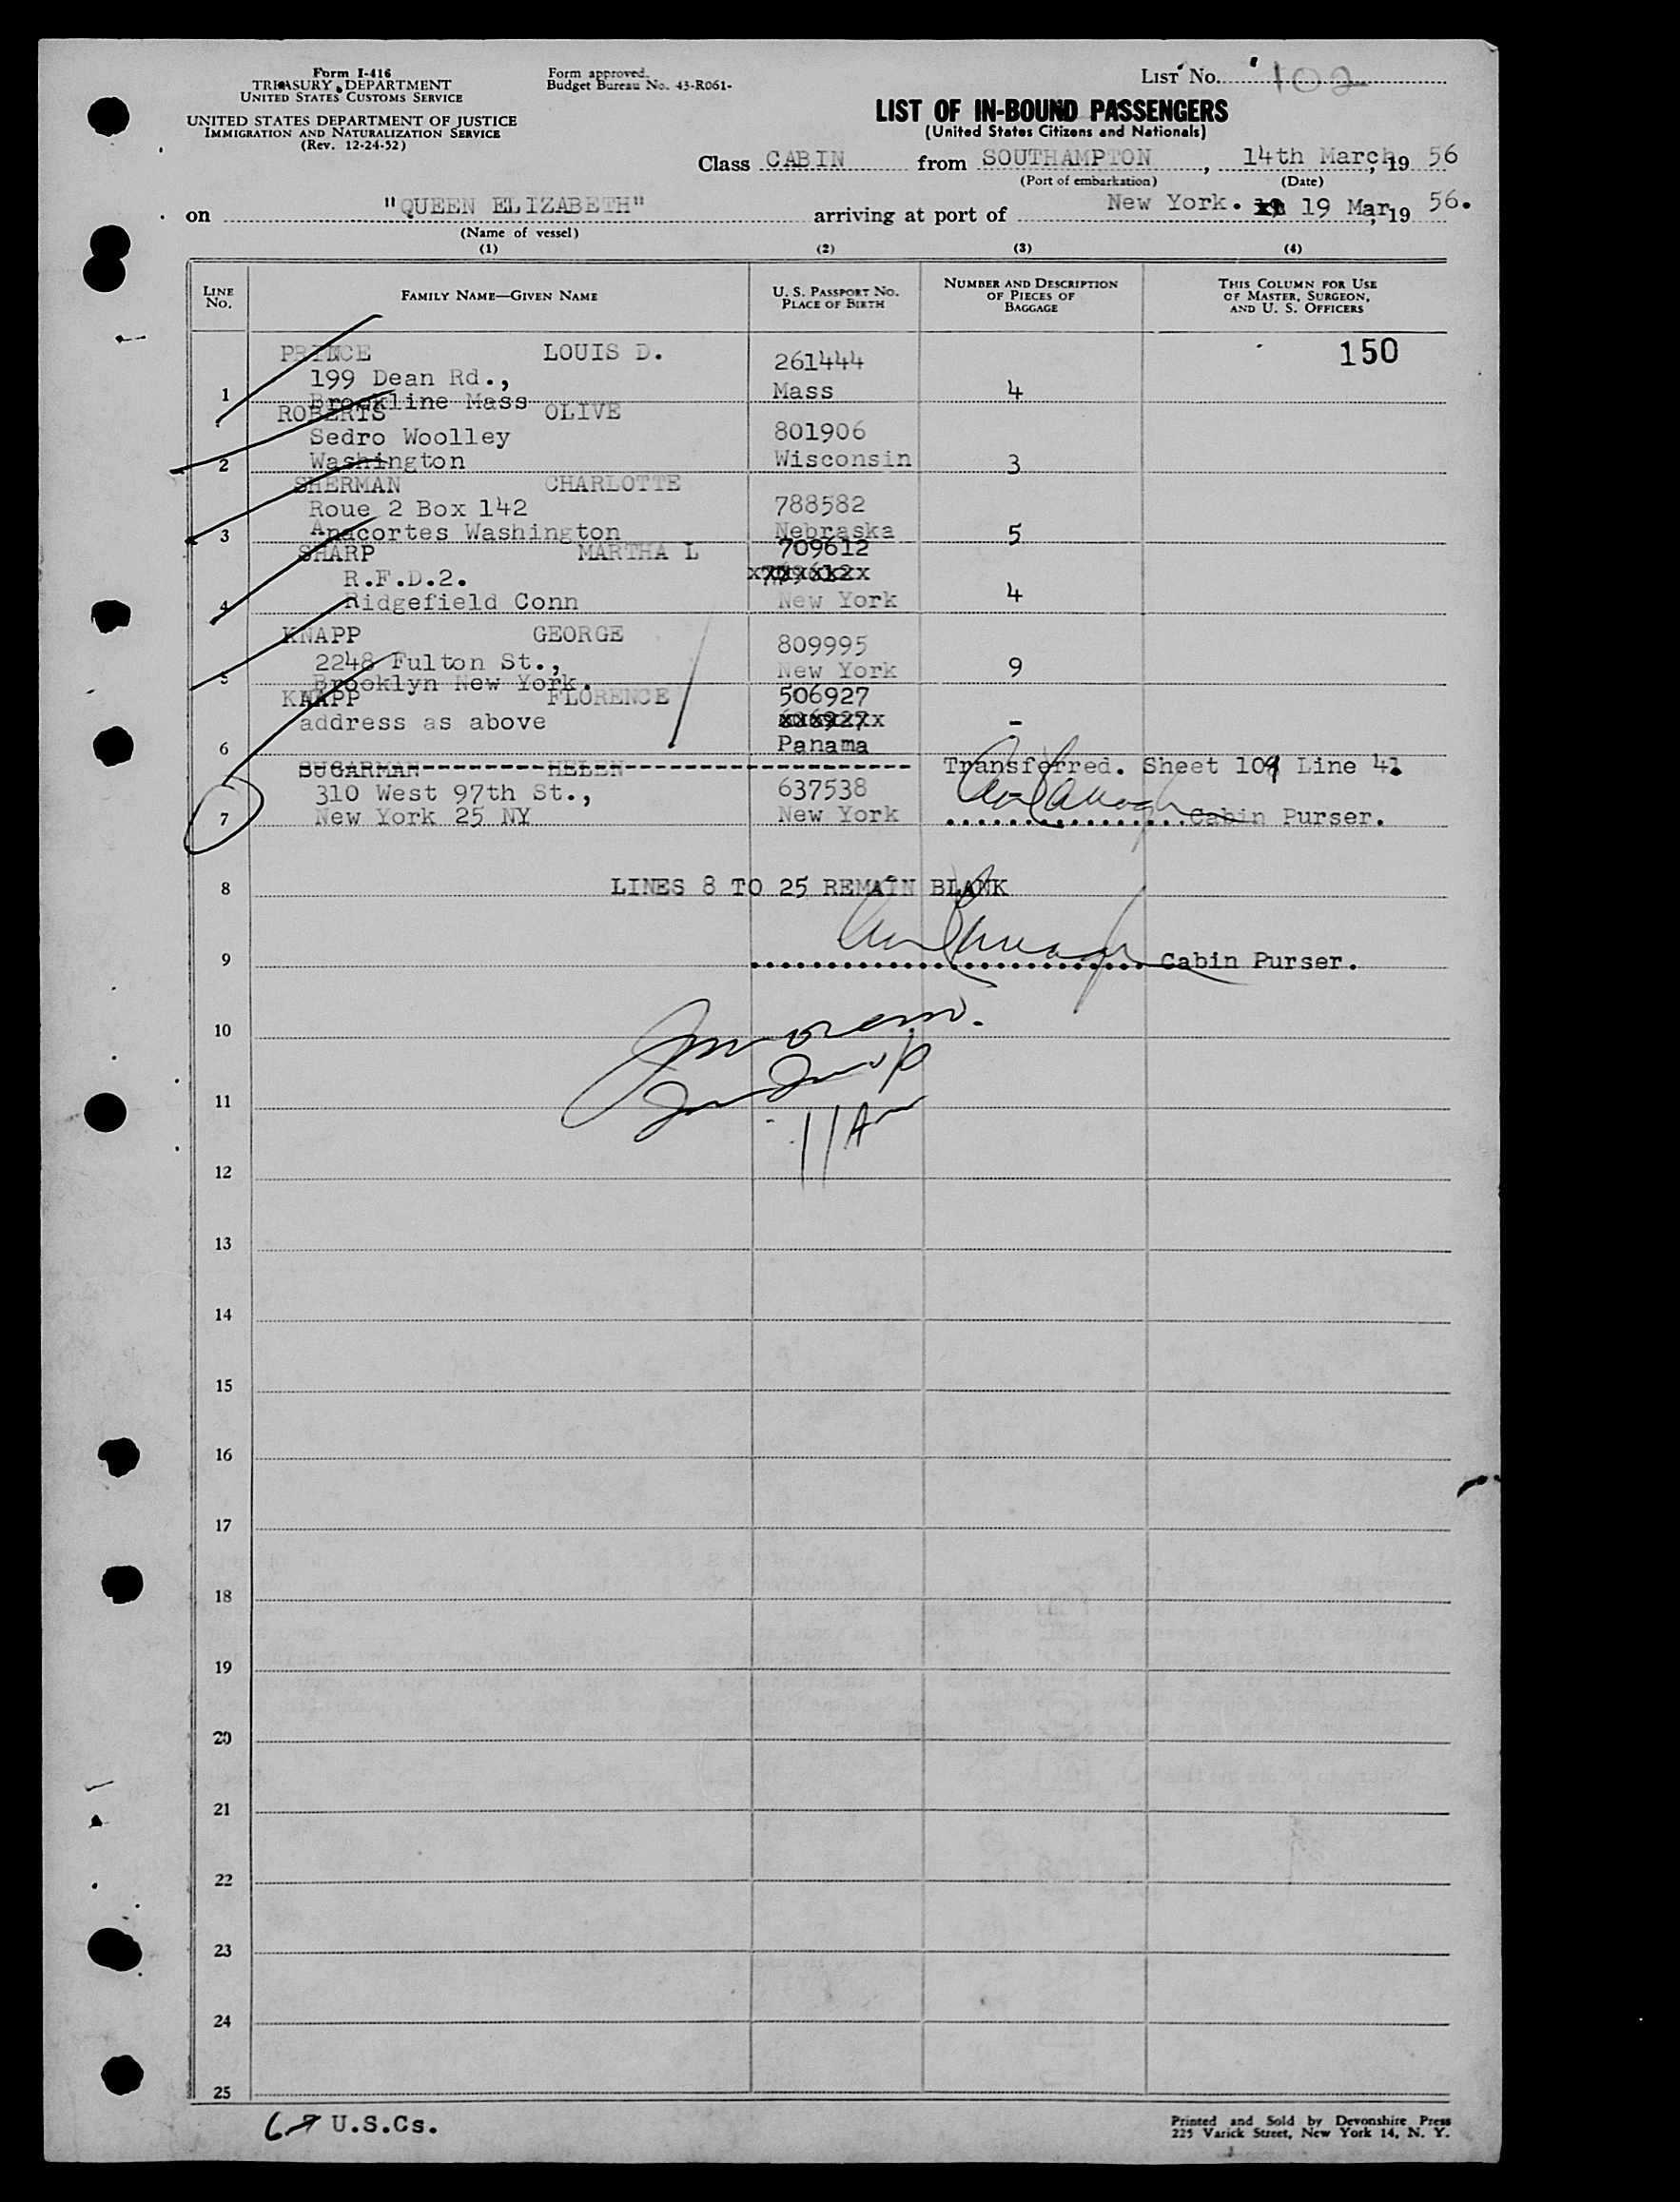 Form I-416
TREASURY DEPARTMENT
UNITED STATES CUSTOMS SERVICE
UNITED STATES DEPARTMENT OF JUSTICE
IMMIGRATION AND NATURALIZATION SERVICE
(Rev. 12-24-52)
Form approved.
Budget Bureau No. 43-R061-
LIST No. 102
LIST OF IN-BOUND PASSENGERS
(United States Citizens and Nationals)
Class CABIN from SOUTHAMPTON, 14th March, 19 56
(Port of embarkation) (Date)
on "QUEEN ELIZABETH" arriving at port of New York. 19 Mar, 19 56.
(Name of vessel)
(1) (2) (3) (4)
LINE NO. FAMILY NAME—GIVEN NAME U. S. PASSPORT NO. PLACE OF BIRTH NUMBER AND DESCRIPTION OF PIECES OF BAGGAGE THIS COLUMN FOR USE OF MASTER, SURGEON, AND U. S. OFFICERS
150
PRINCE LOUIS D. 261444
199 Dean Rd.,
1 Brookline Mass Mass 4
ROBERTS OLIVE
Sedro Woolley 801906
2 Washington Wisconsin 3
SHERMAN CHARLOTTE
Roue 2 Box 142 788582
3 Anacortes Washington Nebraska 5
SHARP MARTHA L 709612
R.F.D.2.
4 Ridgefield Conn New York 4
KNAPP GEORGE 809995
2248 Fulton St., New York 9
5 Brooklyn New York.
KNAPP FLORENCE 506927
address as above -
6 Panama
SUGARMAN HELEN Transferred. Sheet 109 Line 41
310 West 97th St., 637538 -
7 New York 25 NY New York Cabin Purser.
8 LINES 8 TO 25 REMAIN BLANK
9 Cabin Purser.
10
11
12
13
14
15
16
17
18
19
20
21
22
23
24
25
6 U.S.Cs.
Printed and Sold by Devonshire Press
225 Varick Street, New York 14, N. Y.